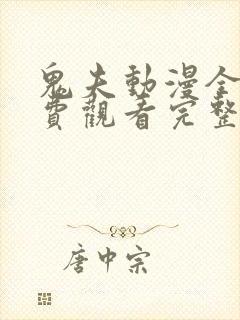 鬼夫動漫全
費觀看完整
唐中宗